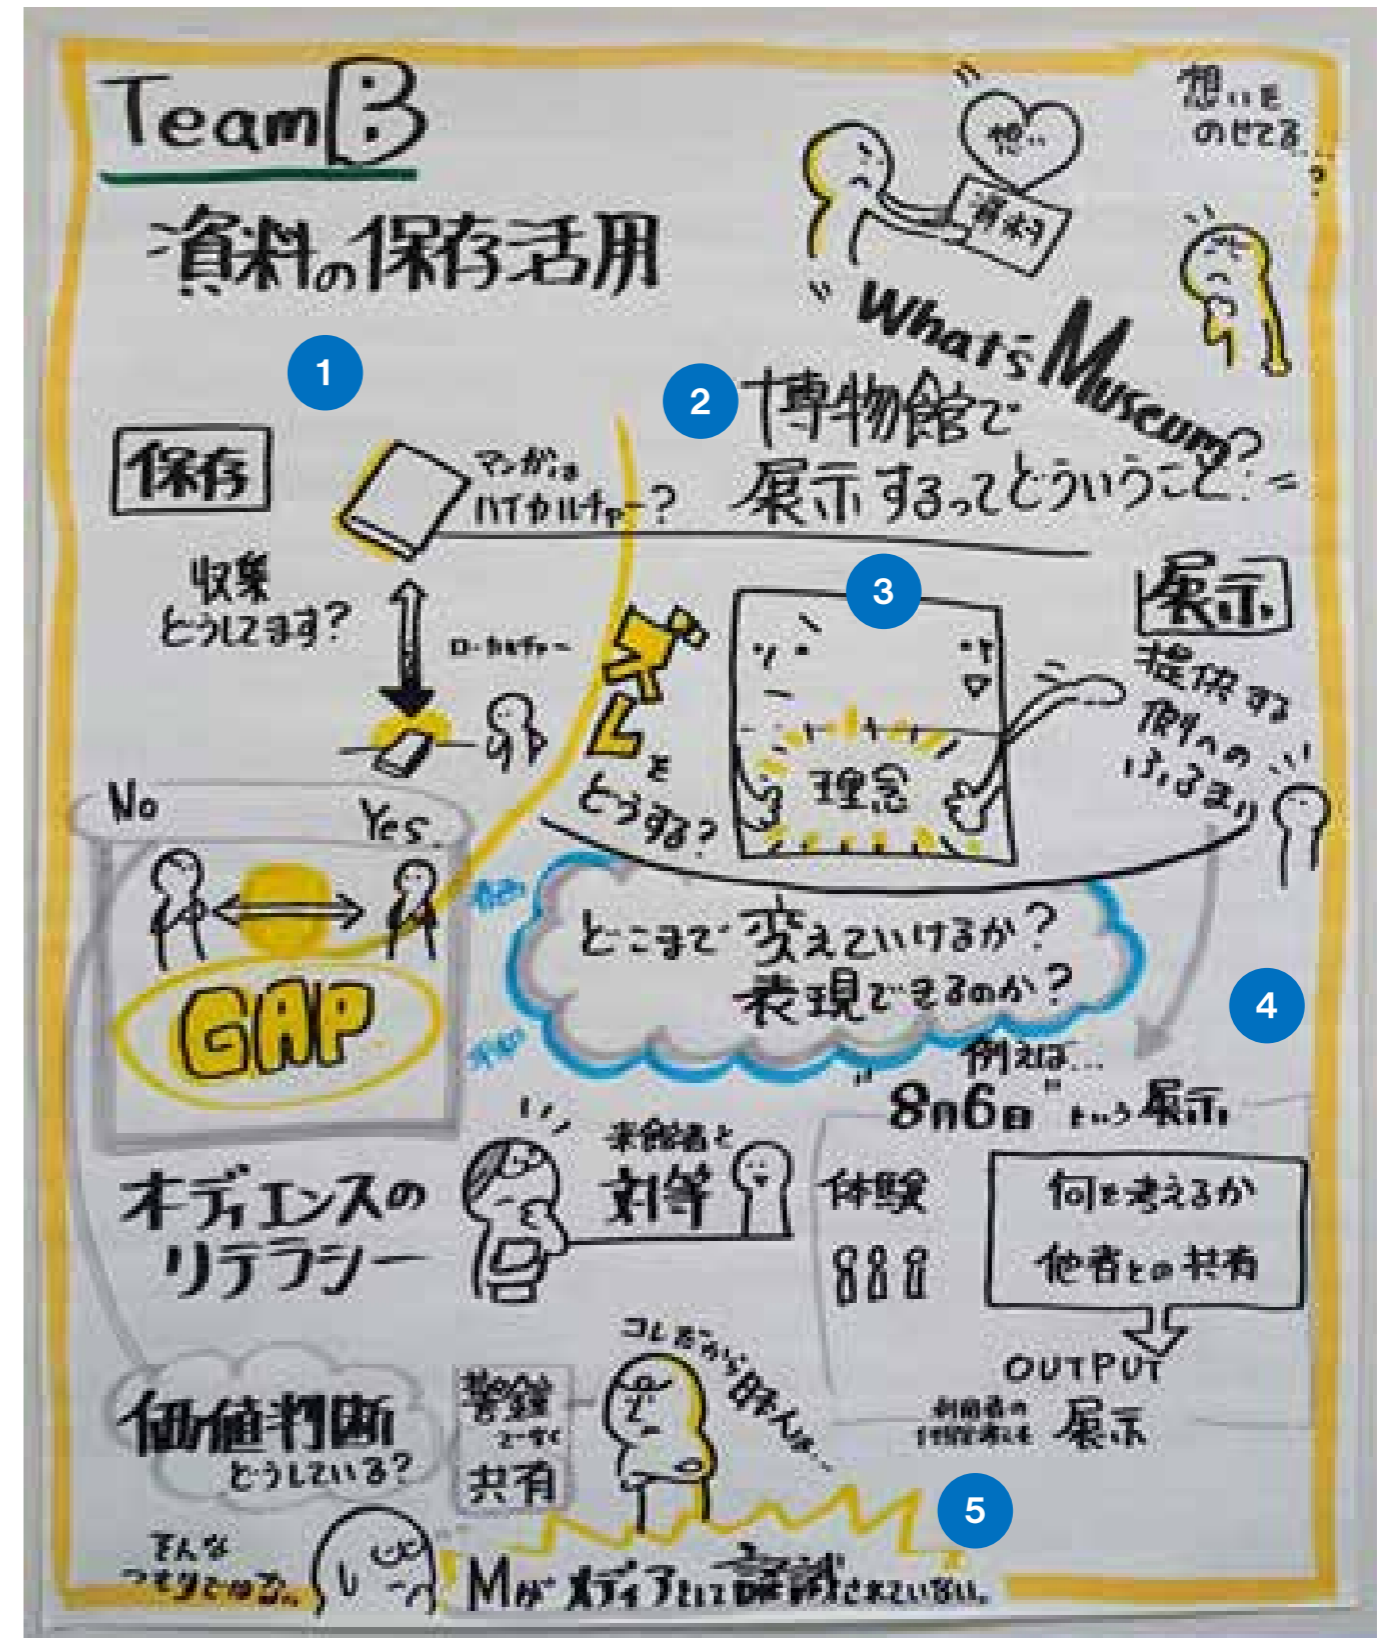 Team B
資料の保存活用
想い
資料
想いを
のせてる...?
What's Museum?
1
2
博物館で
展示するってどういうこと?
保存
マンガは
ハイカルチャー?
収集
どうしてます?
ローカルチャー
3
展示
提供する
側への
ふるまい
を
どうする?
理念
No
Yes
GAP
どこまで変えていけるか?
表現できるのか?
4
例えば...
"8月6日"という展示
オーディエンスの
リテラシー
来館者と
対等
体験
何を考えるか
他者との共有
OUTPUT
展示
価値判断
どうしている?
共有
コレだから日本人は...
5
そんな
つもりでは...
Mがメディアとして認識されていない。